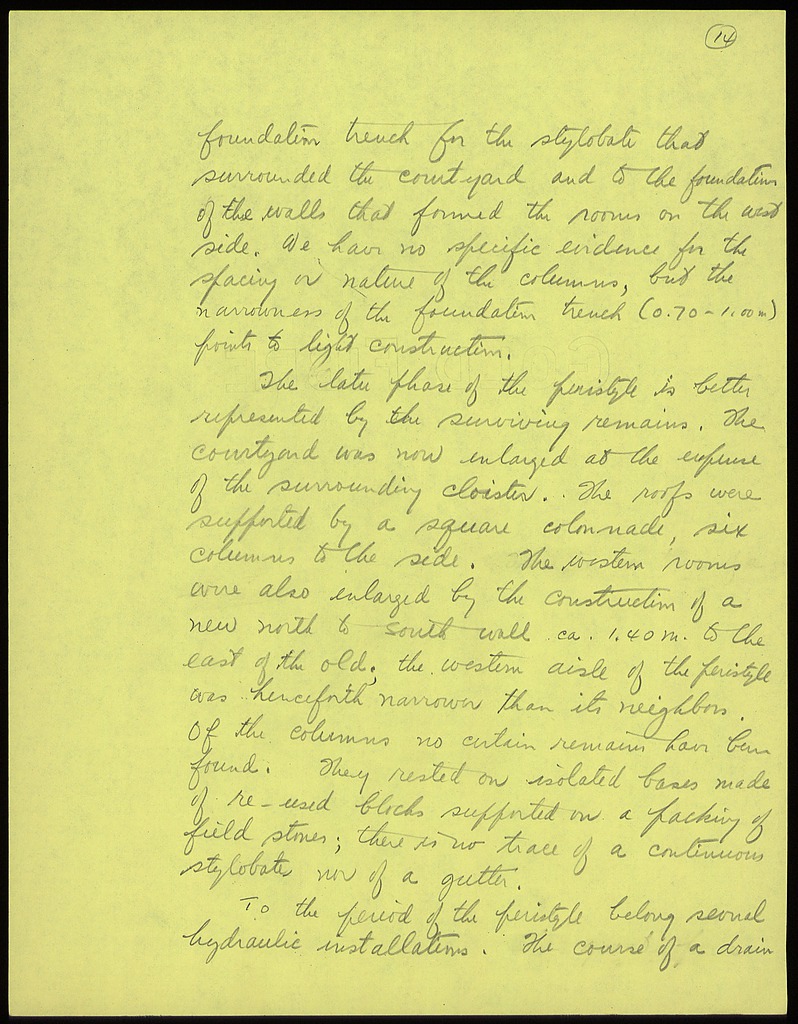 14
foundation trench for the stylobate that
surrounded the courtyard and to the foundations
of the walls that formed the rooms on the west
side. We have no specific evidence for the
spacing or nature of the columns, but the
narrowness of the foundation trench (0.70-1.00m)
points to light construction.
The later phase of the peristyle is better
represented by the surviving remains. The
courtyard was now enlarged at the expense
of the surrounding cloister. The roofs were
supported by a square colonnade, six
columns to the side. The western rooms
were also enlarged by the construction of a
new north to south wall ca. 1.40m. to the
east of the old; the western aisle of the peristyle
was henceforth narrower than its neighbors.
Of the columns no certain remains have been
found. They rested on isolated bases made
of re-used blocks supported on a packing of
field stones; there is no trace of a continuous
stylobate nor of a gutter.
To the period of the peristyle belong several
hydraulic installations. The course of a drain